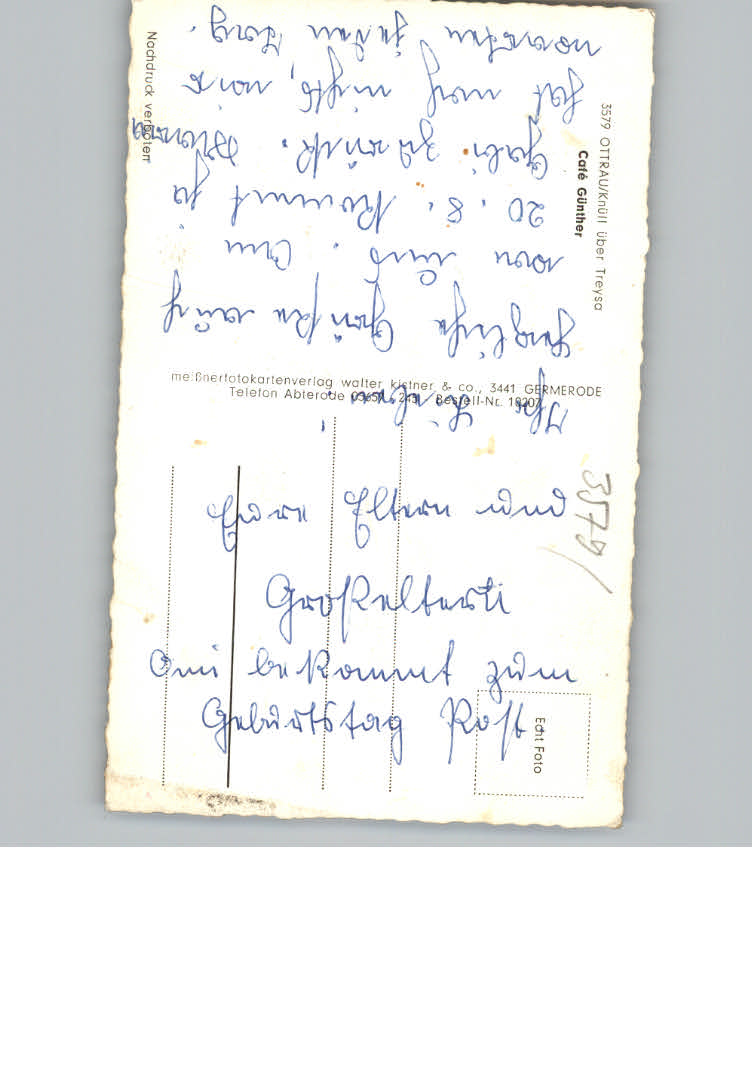 3579 OTTRAU/Knüll über Treysa
Café Günther
Ihr Lieben,
herzliche Grüße auch
von uns. Am
20. 8. kommt ja
Gabi zurück.
hat noch nichts, wir
warten jeden Tag.
Eure Eltern und
Großeltern
Omi bekommt zum
Geburtstag Post
meißnerfotokartenverlag walter kistner & co., 3441 GERMERODE
Telefon Abterode Bestell-Nr. 18207
Nachdruck verboten
Echt Foto
3579/